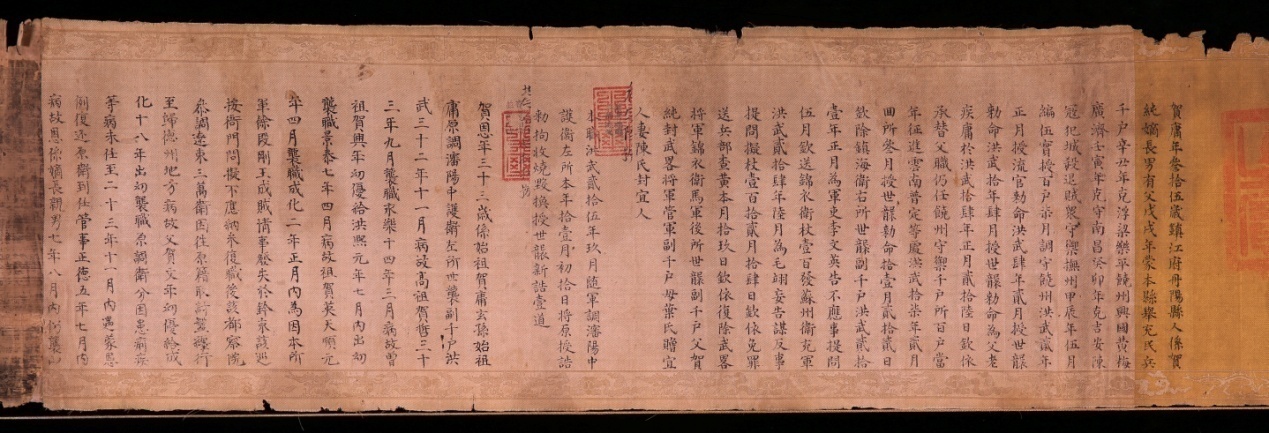 賀庸年叁拾伍歲鎮江府丹陽縣人係賀
純嫡長男有父戊戌年蒙本縣舉充民兵
千户辛丑年克浮梁樂平饒州興國黄梅
廣濟壬寅年克守南昌癸卯年克吉安陳
冦犯城殺退賊衆守禦撫州甲辰年伍月
編伍實授百户本月調守饒州洪武貳年
正月授流官勅命洪武肆年貳月授世襲
勅命洪武拾年肆月授世襲勅命為父老
疾庸於洪武拾肆年正月貳拾陸日欽依
承替父職仍任饒州守禦千户所百户當
年征進雲南普定等處洪武拾柒年貳月
欽除鎮海衛右所世襲副千户洪武貳拾
壹年正月為軍吏李文英告不應事提問
伍月欽送錦衣衛杖壹百發蘇州衛充軍
洪武貳拾肆年陸月為毛翊妄告謀反事
提問擬杖壹百拾貳月拾肆日欽依免罪
送兵部查黄本月拾玖日欽依復除武畧
將軍錦衣衛馬軍後所世襲副千户父賀
純封武畧將軍管軍副千户母葉氏贈宜
人妻陳氏封宜人
本職洪武貳拾伍年玖月隨軍調瀋陽中
護衛左所本年拾壹月初拾日將原授誥
勅拘收燒毁換授世襲新誥壹道
賀恩年三十三歲係始祖賀庸玄孫始祖
庸原調瀋陽中護衛左所世襲副千户洪
武三十二年十一月病故高祖賀哲三十
三年九月襲職永樂十四年三月病故曾
祖賀興年幼優給洪熙元年七月内出幼
襲職景泰七年四月病故祖賀英天順元
年四月襲職成化二年正月内為因本所
軍餘段剛王成賊情事懸失於鈐束該巡
按衙門問擬不應納米復職後該都察院
叅調逺東三萬衛因往原籍取討盤纏行
至歸德州地方病故父賀文年幼優給成
化十八年出幼襲職原調衛分因患痢疾
等病未往至二十三年十一月内遇蒙恩
例復還原衛到任管事正德五年七月内
病故恩係嫡長親男七年八月内